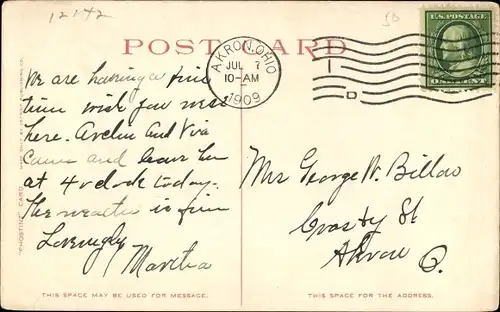 12142
10
POST CARD
U.S. POSTAGE
ONE CENT
AKRON, OHIO
JUL 7
10-AM
1909
I
D
We are having a fine
time wish you were
here. and
Came and leave here
at 4 oclock today.
The weather is fine
Lovingly
Martha
Mr George W. Billow
St
Akron O.
"PHOSTINT" CARD
THIS SPACE MAY BE USED FOR MESSAGE.
THIS SPACE FOR THE ADDRESS.